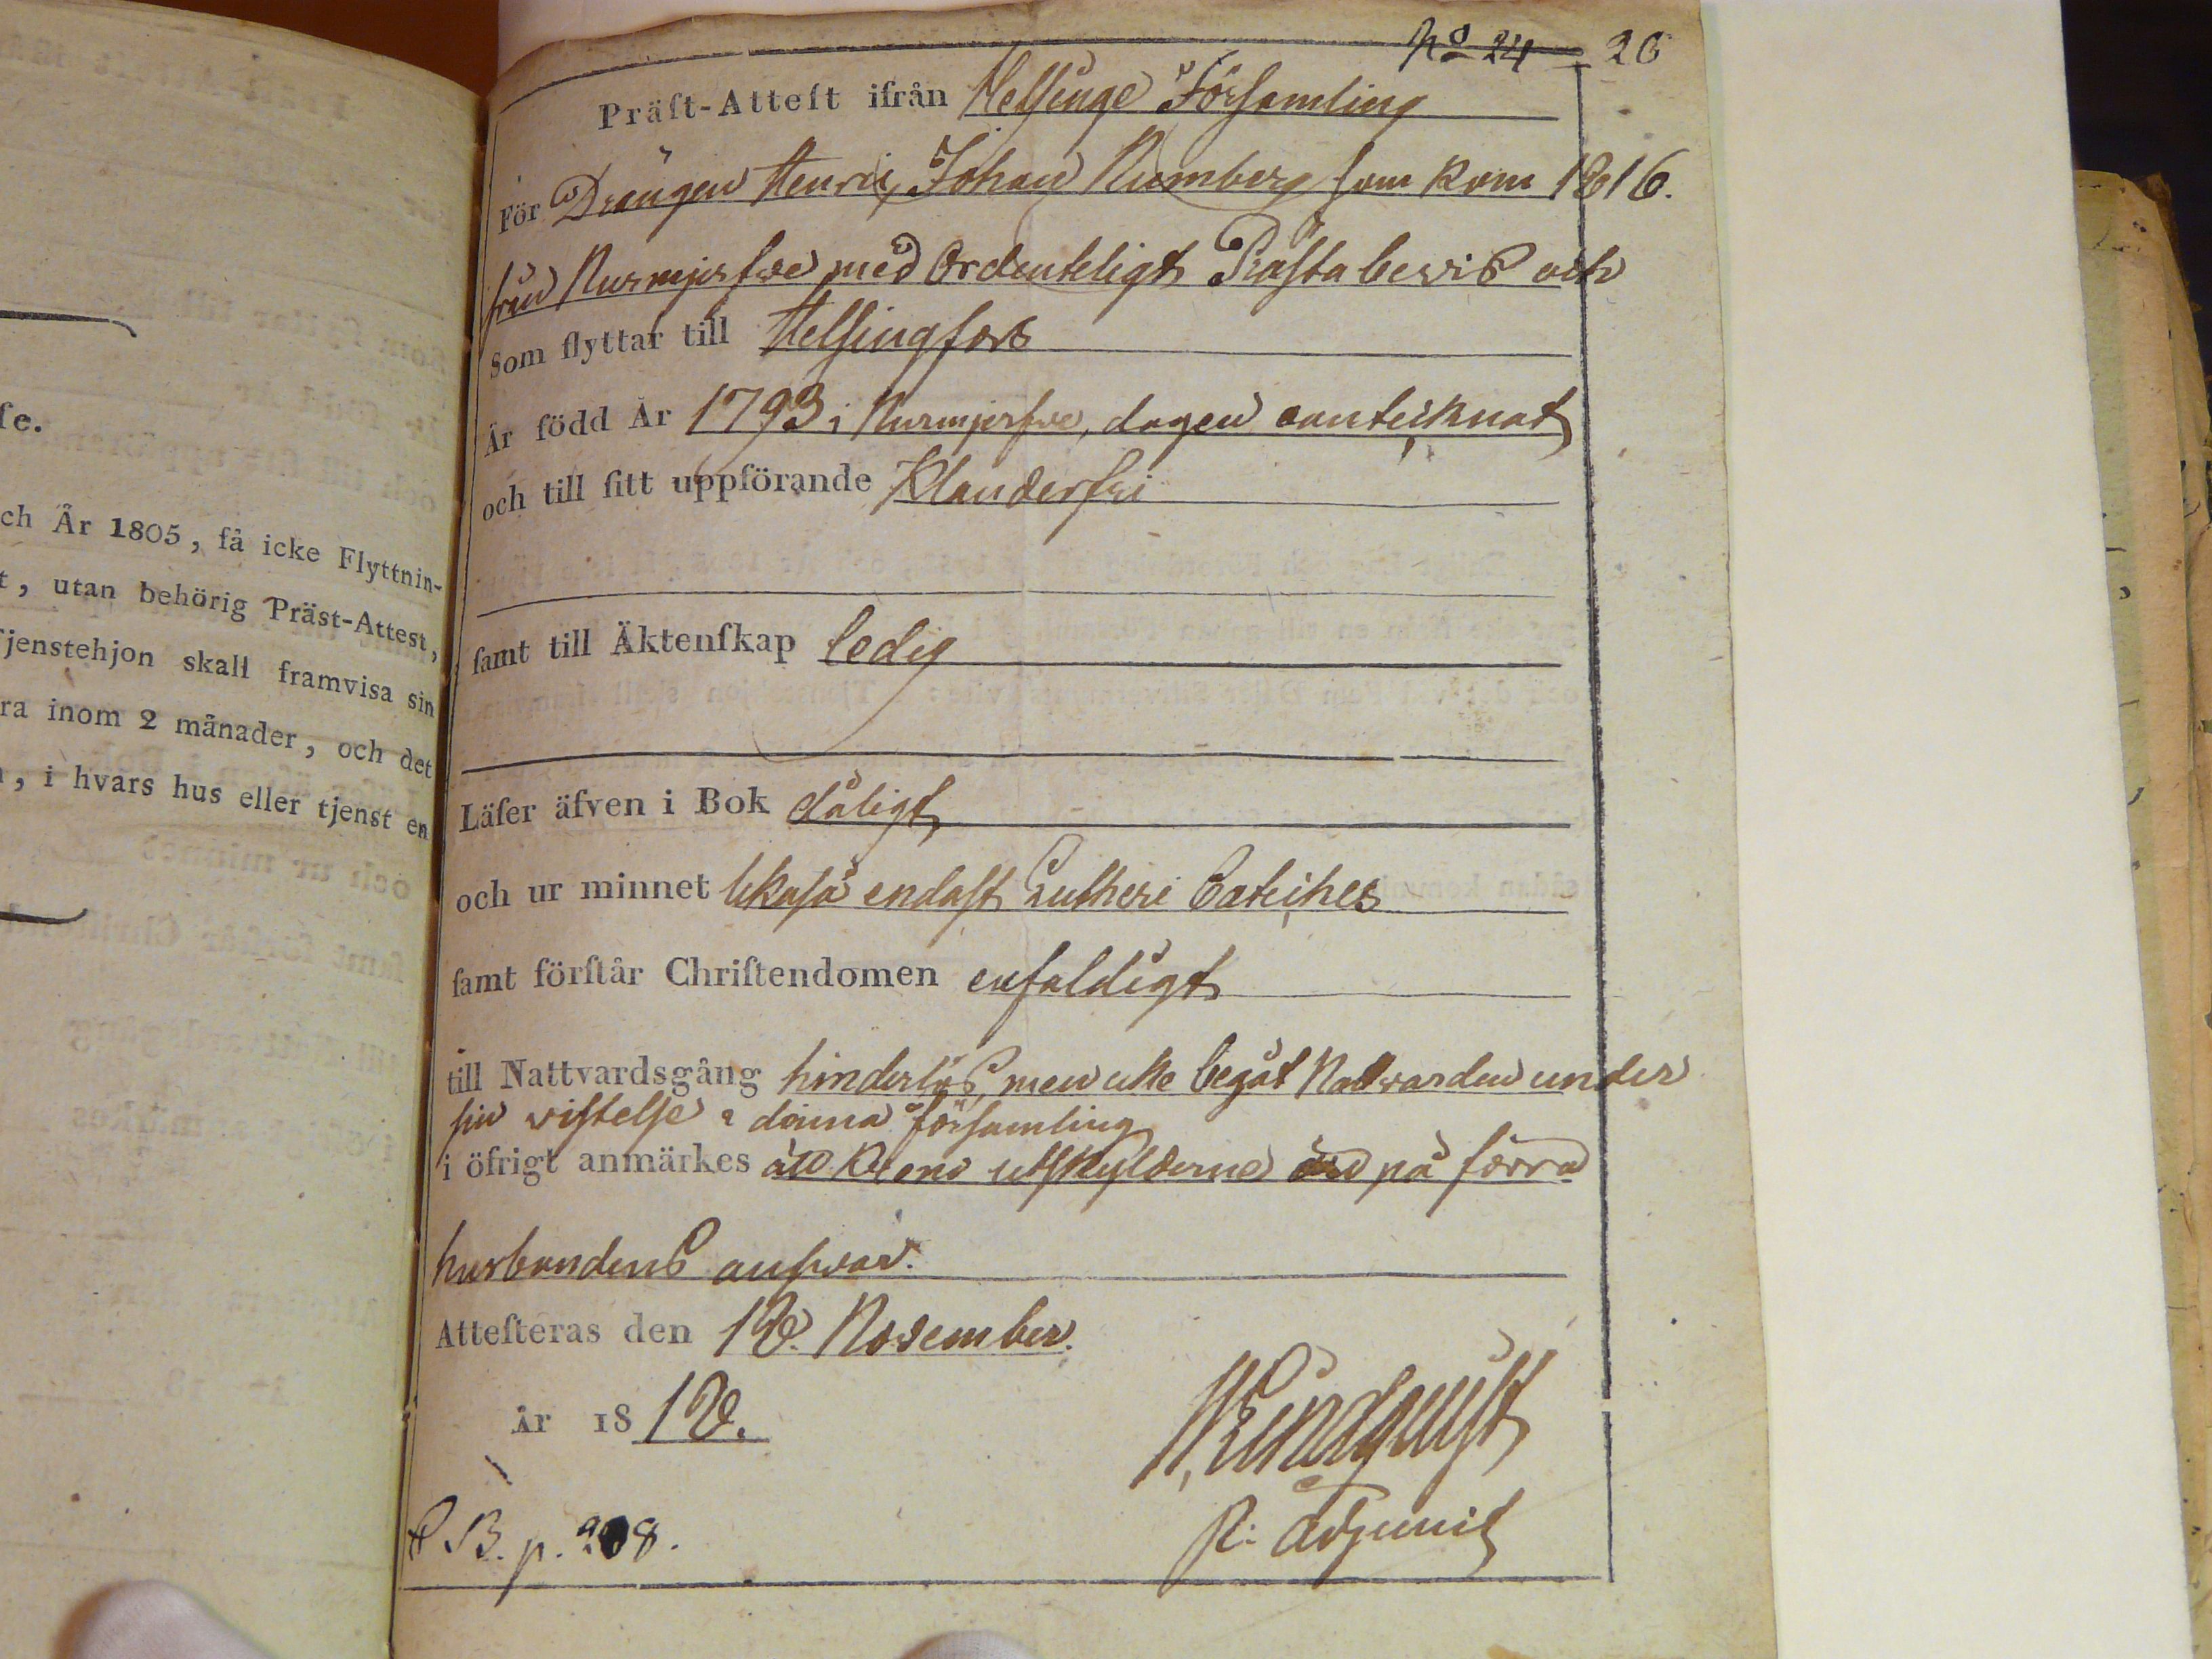 se.
ch År 1805, få icke Flyttnin-
t, utan behörig Präst-Attest,
jenstehjon skall framvisa sin
ra inom 2 månader, och det
, i hvars hus eller tjenst en
No 24 26
Präſt-Atteſt ifrån Helſinge Förſamling
För Drängen Henric Johan Numberg ſom kom 1816.
från Nurmijerfwe med Ordenteligt Präſta bewis och
Som flyttar till Helſingfors
Är född År 1793 i Nurmijerfwe, dagen oanteiknat
och till ſitt uppförande Klanderfri
ſamt till Äktenſkap ledig
Läſer äfven i Bok dåligt
och ur minnet likaſå endaſt Lutheri Cateches
ſamt förſtår Chriſtendomen enfaldigt
till Nattvardsgång hinderlös, men icke begåt Nattvarden under
ſin viſtelſe i denna förſamling
i öfrigt anmärkes att Krono utſkylderne äro på förra
husbondens anſvar.
Atteſteras den 18. November.
År 1818.
N. Lindquiſt
P. Adjunct
C B. p. 208.